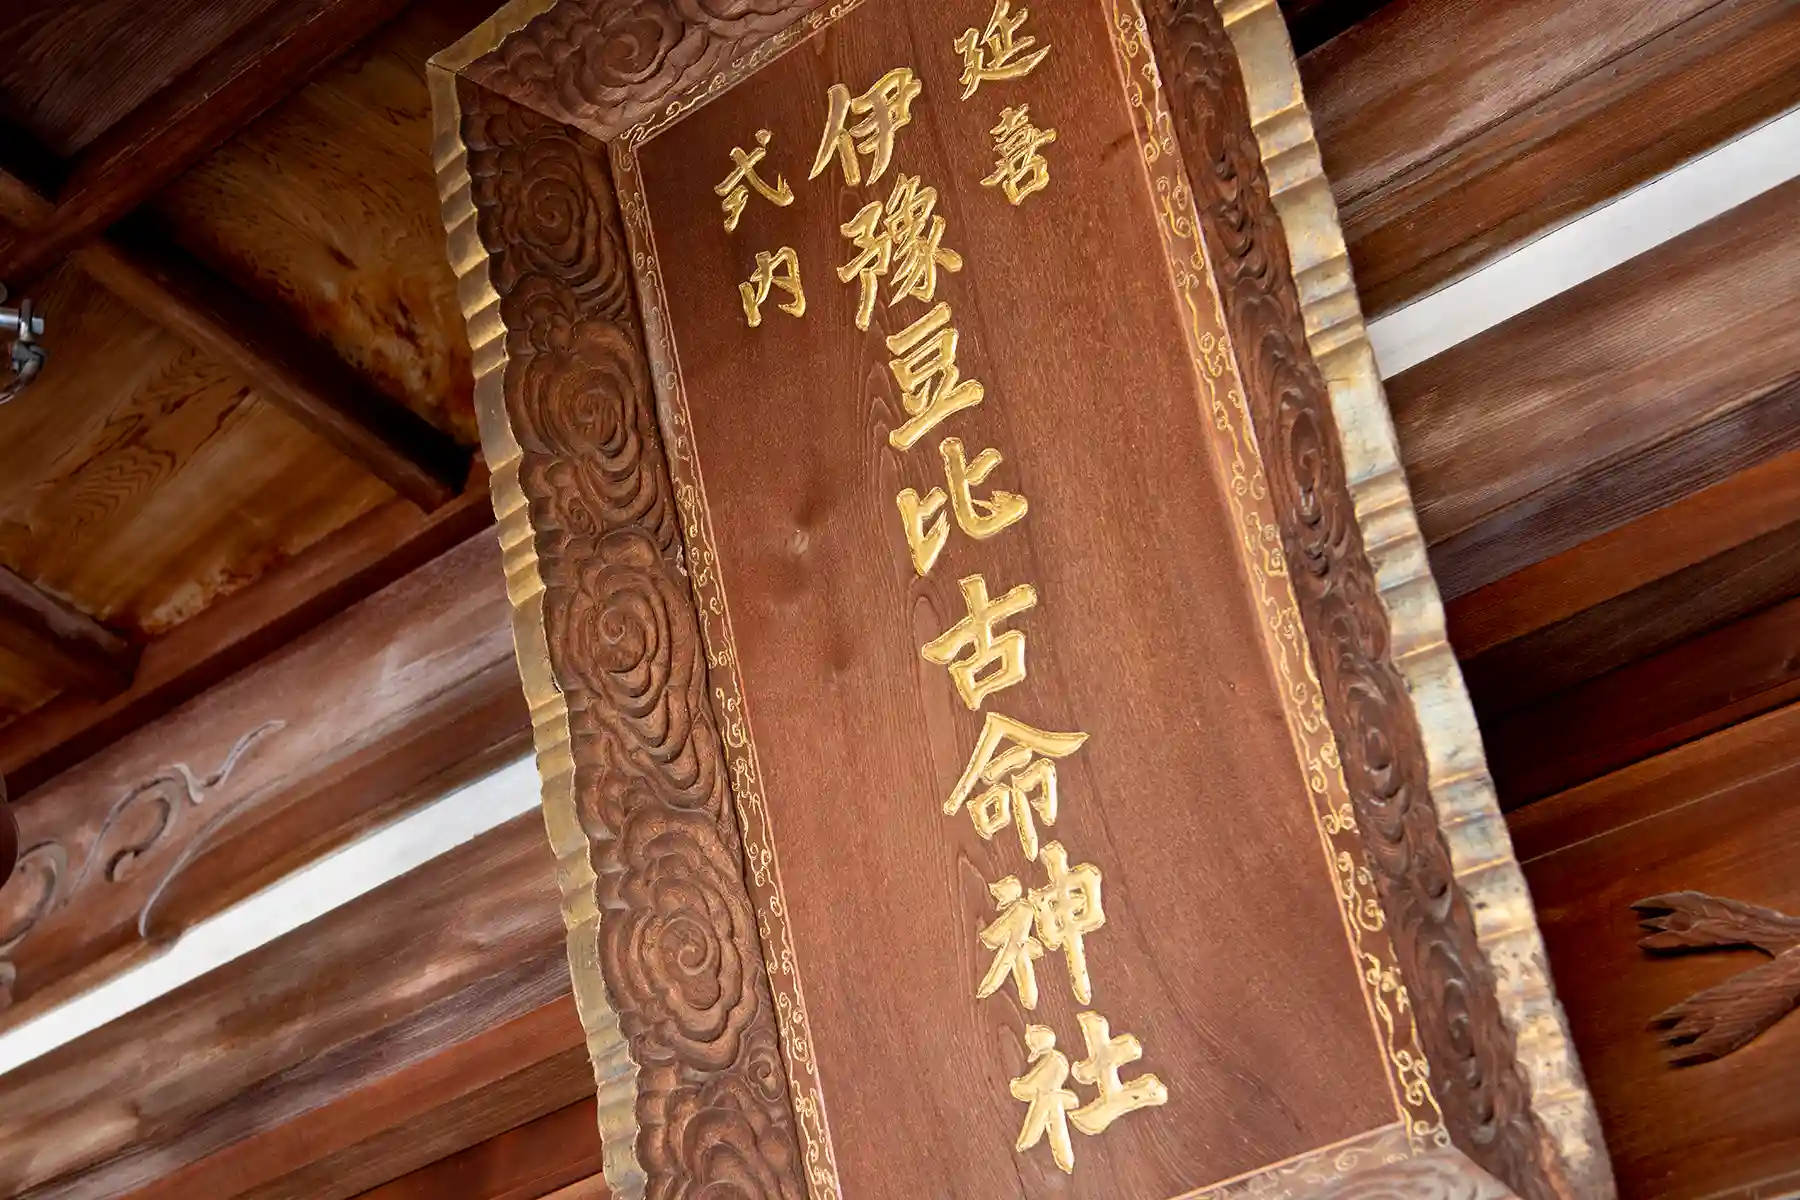 延喜
伊豫豆比古命神社
式内